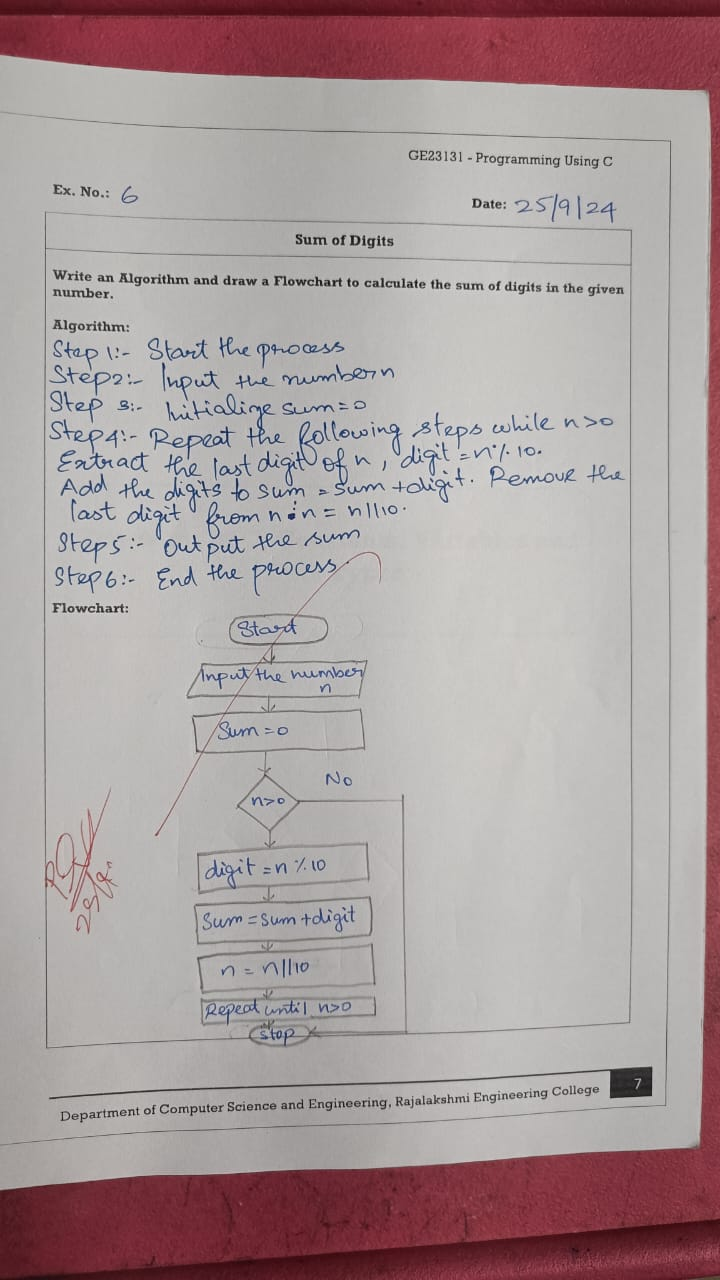 GE23131 - Programming Using C
Ex. No.: 6
Date: 25/9/24
Sum of Digits
Write an Algorithm and draw a Flowchart to calculate the sum of digits in the given
number.
Algorithm:
Step 1:- Start the process
Step2:- Input the number n
Step 3:- Initialize sum=0
Step4:- Repeat the following steps while n>0
Extract the last digit of n, digit = n % 10.
Add the digits to sum = sum + digit. Remove the
last digit from n : n = n//10.
Step5:- Output the sum
Step6:- End the process.
Flowchart:
Start
Input the number
n
Sum = 0
No
n>0
digit = n % 10
Sum = sum + digit
n = n//10
Repeat until n>0
stop
Department of Computer Science and Engineering, Rajalakshmi Engineering College
7